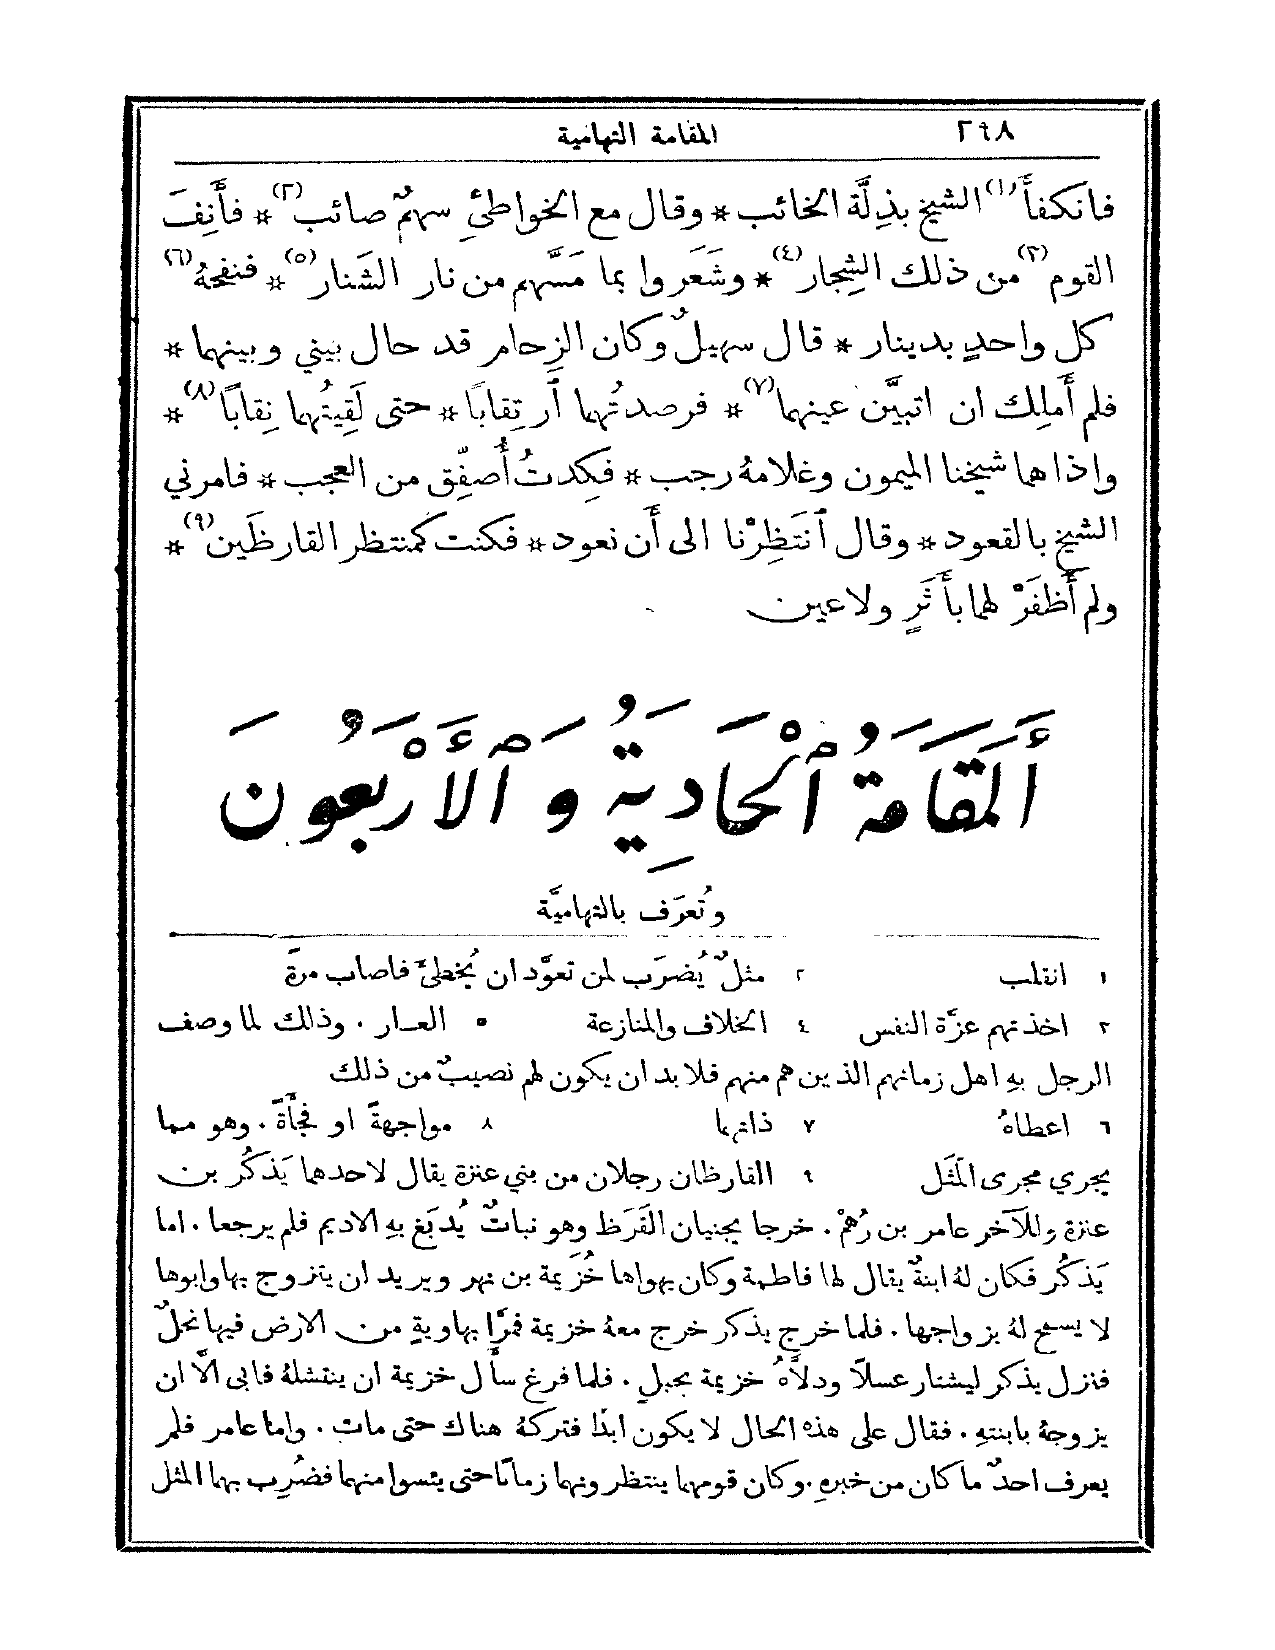 ٢٩٨ المقامة التهامية
فانكفأَ(١) الشيخ بذِلَّة الخائب * وقال مع الخواطئِ سهمٌ صائب(٢) * فأَنِفَ
القوم(٣) من ذلك الشِجار(٤) * وشَعَروا بما مَسَّهم من نار الشَنار(٥) * فنفحهُ(٦)
كل واحدٍ بدينار * قال سهيلٌ وكان الزِحام قد حال بيني وبينهما *
فلم أَملِك ان اتبيَّن عينهما(٧) * فرصدتُهما ٱرتِقابًا * حتى لَقِيتُهما نِقابًا(٨) *
واذا هما شيخنا الميمون وغلامهُ رجب * فكِدتُ أُصفِّق من العجب * فامرني
الشيخ بالقعود * وقال ٱنتَظِرْنا الى أَن نعود * فكنت كمنتظر القارظَين(٩) *
ولم أَظفَرْ لهما بأَثَرٍ ولاعين
أَلمَقَامَةُ ٱلْحَادِيَةُ وَٱلأَرْبَعُونَ
وتُعرَف بالتهاميَّة
١ انقلب ٢ مثلٌ يُضرَب لمن تعوَّد ان يُخطئَ فاصاب مرةً
٣ اخذتهم عزَّة النفس ٤ الخلاف والمنازعة ٥ العار. وذلك لما وصف
الرجل بهِ اهل زمانهم الذين هم منهم فلا بد ان يكون لهم نصيبٌ من ذلك
٦ اعطاهُ ٧ ذاتهما ٨ مواجهةً او فجأَةً. وهو مما
يجري مجرى المَثَل ٩ القارظان رجلان من بني عنزة يقال لاحدهما يَذكُر بن
عنزة وللآخر عامر بن رُهْم. خرجا يجنيان القَرَظ وهو نباتٌ يُدبَغ بهِ الاديم فلم يرجعا. اما
يَذكُر فكان لهُ ابنةٌ يقال لها فاطمة وكان يهواها خُزَيمة بن نهر ويريد ان يتزوج بها وابوها
لا يسمح لهُ بزواجها. فلما خرج يذكر خرج معهُ خزيمة فمرَّا بهاويةٍ من الارض فيها نحلٌ
فنزل يذكر ليشتار عسلًا ودلَّاهُ خزيمة بحبلٍ. فلما فرغ سأَل خزيمة ان ينتشلهُ فابى الَّا ان
يزوجهُ بابنتهِ. فقال على هذه الحال لا يكون ابدًا فتركهُ هناك حتى مات. واما عامر فلم
يعرف احدٌ ما كان من خبرهِ. وكان قومهما ينتظرونهما زمانًا حتى يئسوا منهما فضُرِب بهما المثل